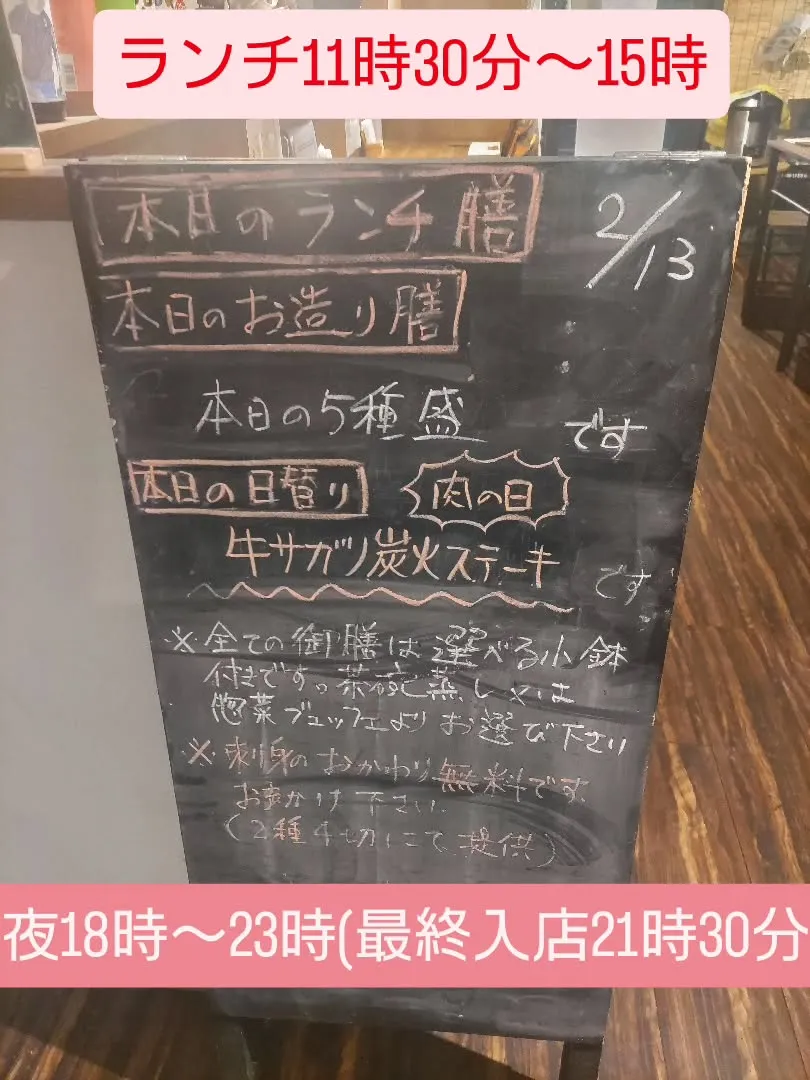 ランチ11時30分〜15時
本日のランチ膳
2/13
本日のお造り膳
本日の5種盛 です
本日の日替り 肉の日
牛サガリ炭火ステーキ です
※全ての御膳は選べる小鉢
付きです。茶碗蒸し又は
惣菜ブュッフェよりお選び下さい
※刺身のおかわり無料です
お声かけ下さい
(2種4切にて提供)
夜18時〜23時(最終入店21時30分